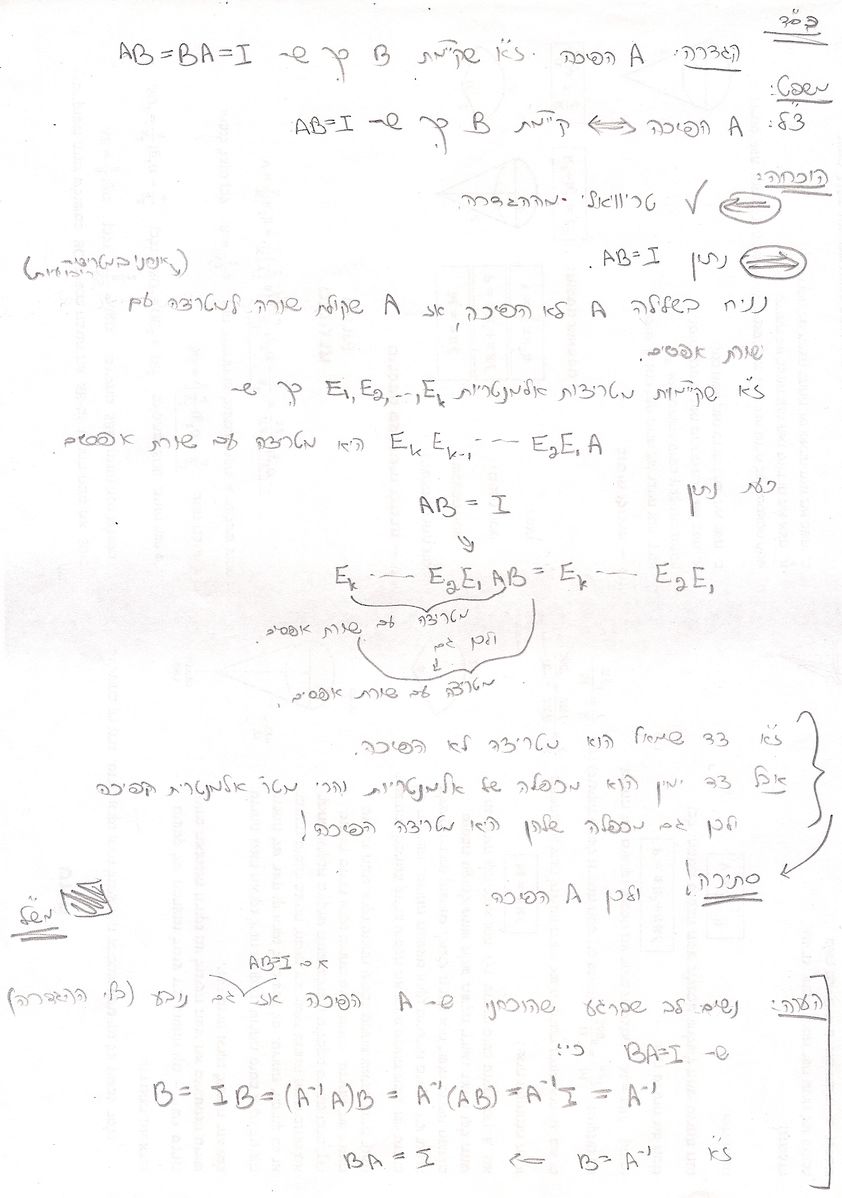 בס"ד
הגדרה: A הפיכה. ז"א שקיימת B כך ש- AB=BA=I
משפט:
צ"ל: A הפיכה ⟺ קיימת B כך ש- AB=I
הוכחה:
⟸ ✓ טריוואלי מההגדרה.
⟹ נתון AB=I.
נניח בשלילה A לא הפיכה, אז A שקולת שורה למטריצה עם
שורת אפסים.
ז"א שקיימות מטריצות אלמנטריות E₁,E₂,...,Eₖ כך ש-
Eₖ Eₖ₋₁ ... E₂E₁A היא מטריצה עם שורת אפסים
כעת נתון
AB = I
⇓
Eₖ ... E₂E₁AB = Eₖ ... E₂E₁
מטריצה עם שורת אפסים.
ולכן גם
↓
מטריצה עם שורת אפסים.
ז"א צד שמאל הוא מטריצה לא הפיכה.
אבל צד ימין הוא מכפלה של אלמנטריות והרי מטר' אלמנטרית הפיכה
ולכן גם מכפלה שלהן היא מטריצה הפיכה!
סתירה! ולכן A הפיכה.
מש"ל
אם AB=I
הערה: נשים לב שברגע שהוכחנו ש- A הפיכה אז גם נובע (בלי ההגדרה)
ש- BA=I כי:
B = IB = (A⁻¹A)B = A⁻¹(AB) = A⁻¹I = A⁻¹
ז"א B = A⁻¹ ← BA = I